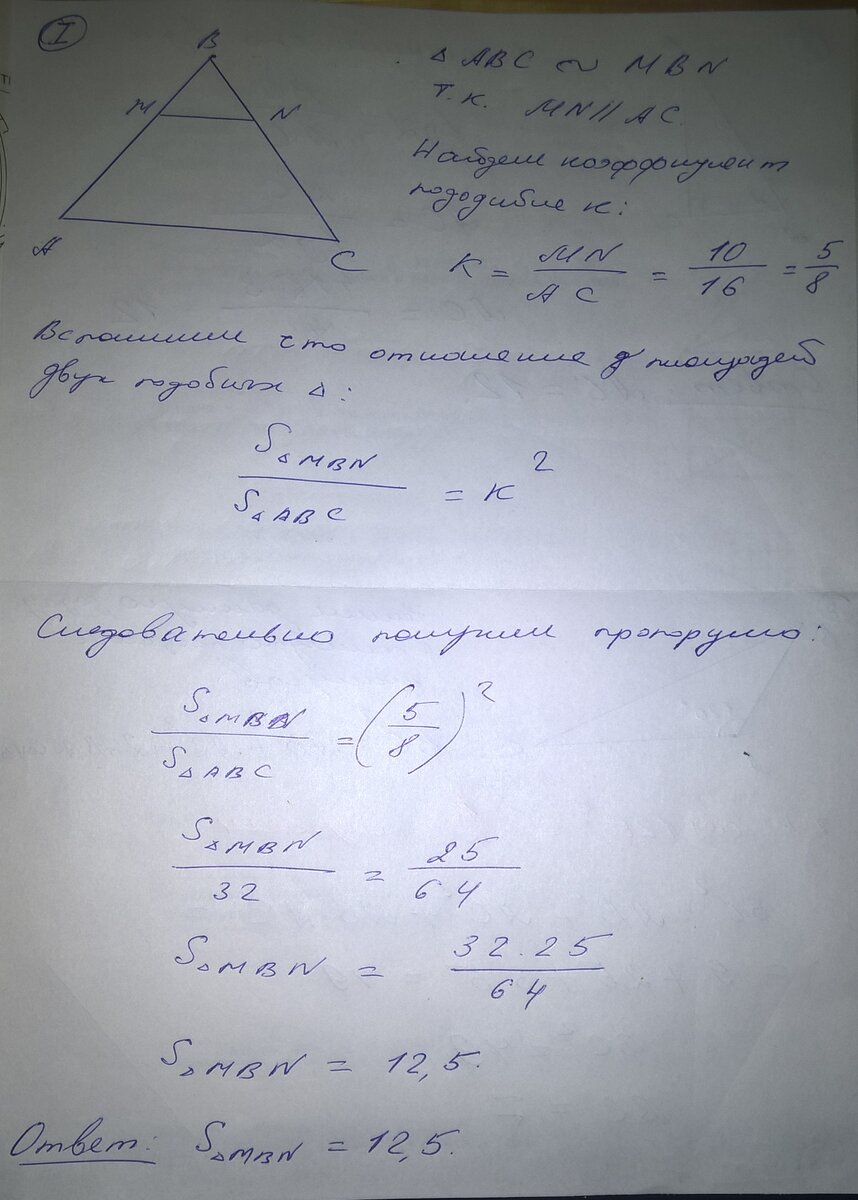 I
B
M N
A C
Δ ABC ~ MBN
т.к. MN//AC
Найдем коэффициент
пододибие к:
K = MN/AC = 10/16 = 5/8
Вспомним что отношение площадей
двух подобных Δ:
SΔMBN/SΔABC = K²
Следовательно получим пропорцию:
SΔMBN/SΔABC = (5/8)²
SΔMBN/32 = 25/64
SΔMBN = 32·25/64
SΔMBN = 12,5.
Ответ: SΔMBN = 12,5.